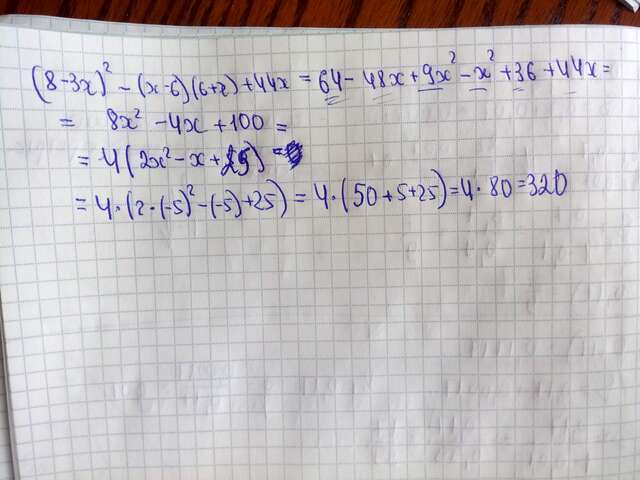 (8-3x)² - (x-6)(6+x) + 44x = 64 - 48x + 9x² - x² + 36 + 44x =
= 8x² - 4x + 100 =
= 4(2x² - x + 25) =
= 4·(2·(-5)² - (-5) + 25) = 4·(50 + 5 + 25) = 4·80 = 320